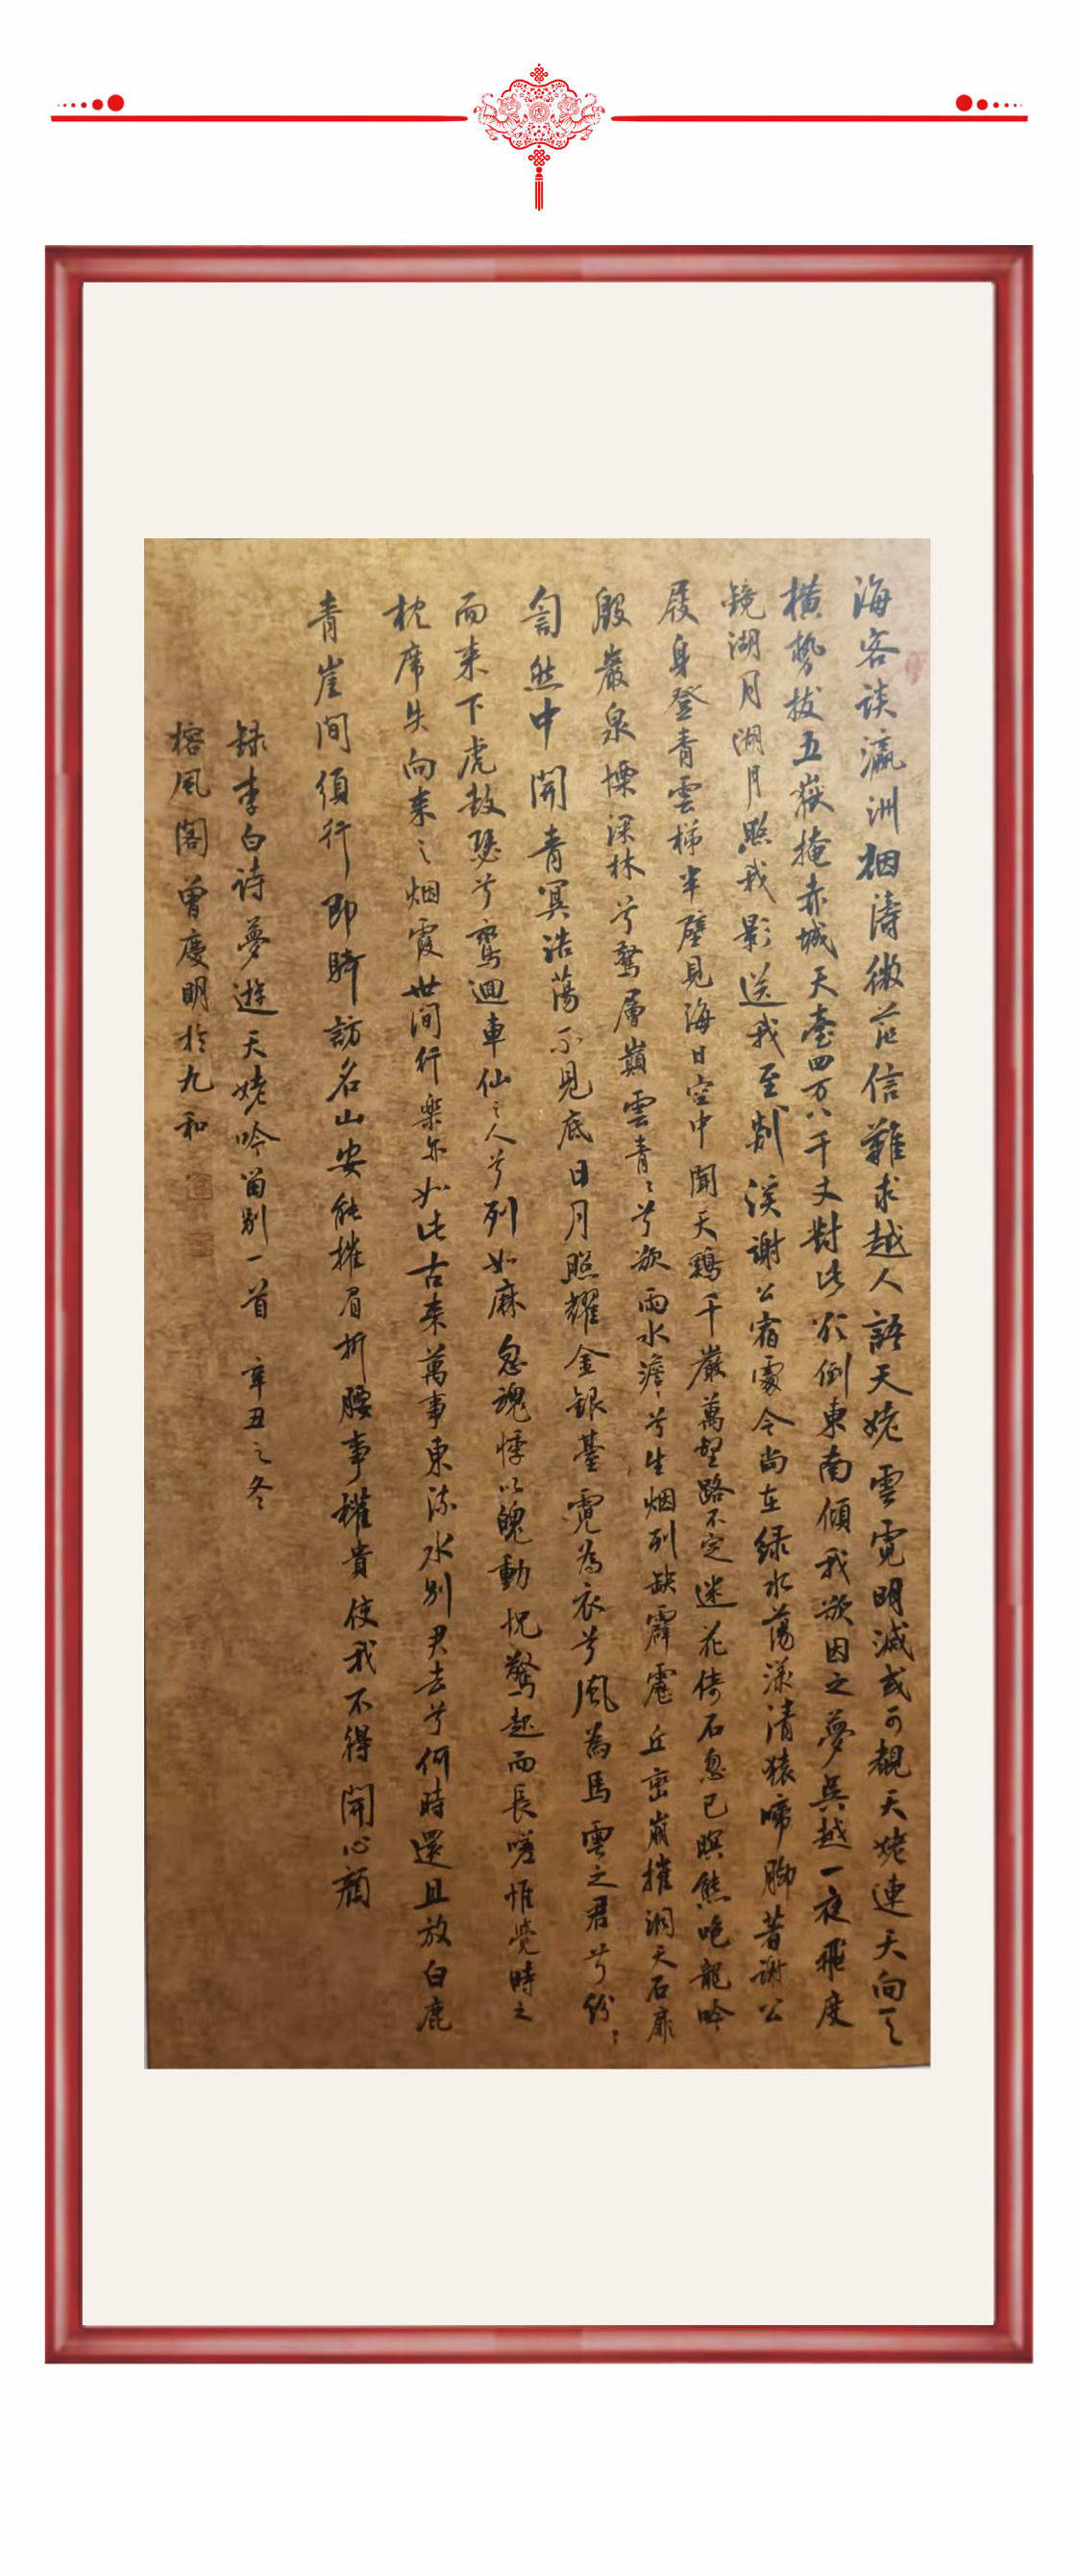 海客談瀛洲烟濤微茫信難求越人語天姥雲霓明滅或可覩天姥連天向天
橫勢拔五嶽掩赤城天臺四万八千丈對此欲倒東南傾我欲因之夢吳越一夜飛度
鏡湖月湖月照我影送我至剡溪謝公宿處今尚在綠水蕩漾清猿啼腳著謝公
屐身登青雲梯半壁見海日空中聞天鷄千巖萬壑路不定迷花倚石忽已暝熊咆龍吟
殷巖泉慄深林兮驚層巔雲青〻兮欲雨水澹〻兮生烟列缺霹靂丘巒崩摧洞天石扉
訇然中開青冥浩蕩不見底日月照耀金銀臺霓為衣兮風為馬雲之君兮紛〻
而来下虎鼓瑟兮鸞迴車仙之人兮列如麻忽魂悸以魄動怳驚起而長嗟惟覺時之
枕席失向来之烟霞世間行樂亦如此古来萬事東流水別君去兮何時還且放白鹿
青崖間須行即騎訪名山安能摧眉折腰事權貴使我不得開心顏
録李白詩夢遊天姥吟留別一首 辛丑之冬
榕風閣曾慶明於九和